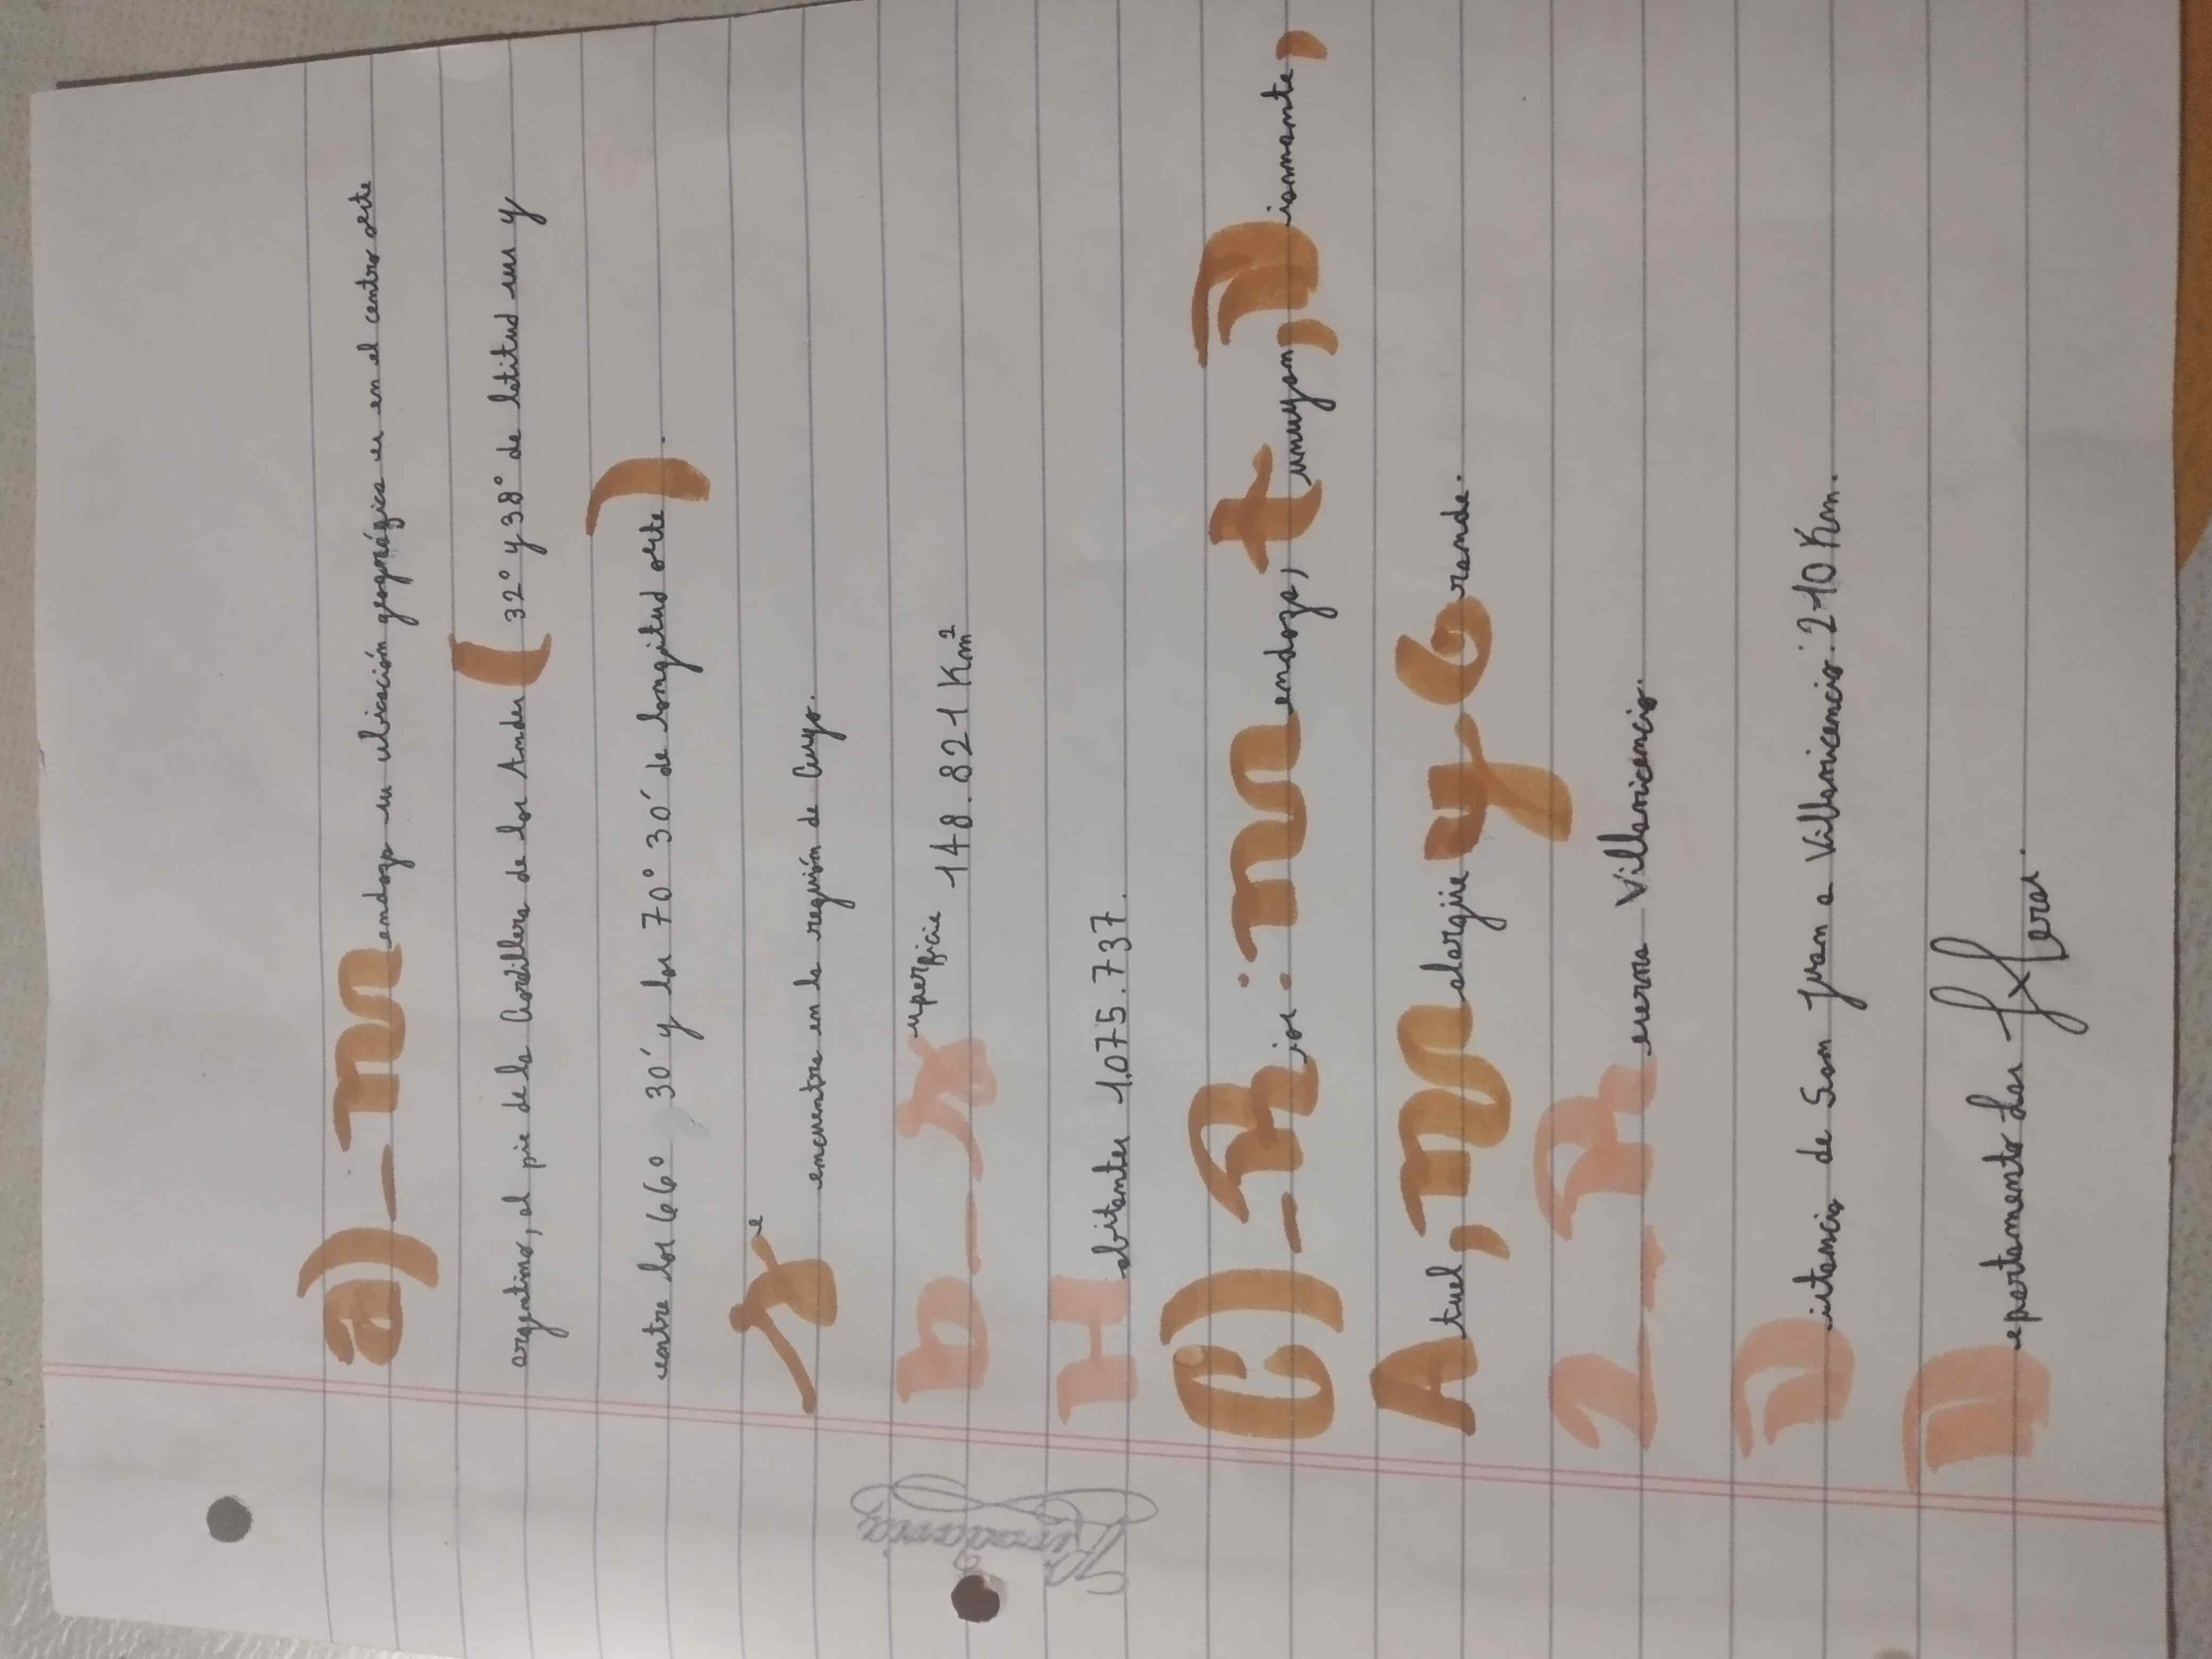 a) - Mendoza su ubicación geográfica es en el centro oeste
argentino, al pie de la Cordillera de los Andes ( 32° y 38° de latitud sur y
entre los 66° 30´ y los 70° 30´ de longitud oeste ).
Se encuentra en la región de Cuyo.
b - Superficie 148.821 Km²
Habitantes 1.075.737.
C) - Rios: Mendoza, tunuyan, Diamante,
Atuel, Malargüe y Grande.
2 - Reserva Villavicencio.
Distancia de San Juan a Villavicencio: 210 Km.
Departamento Las Heras.